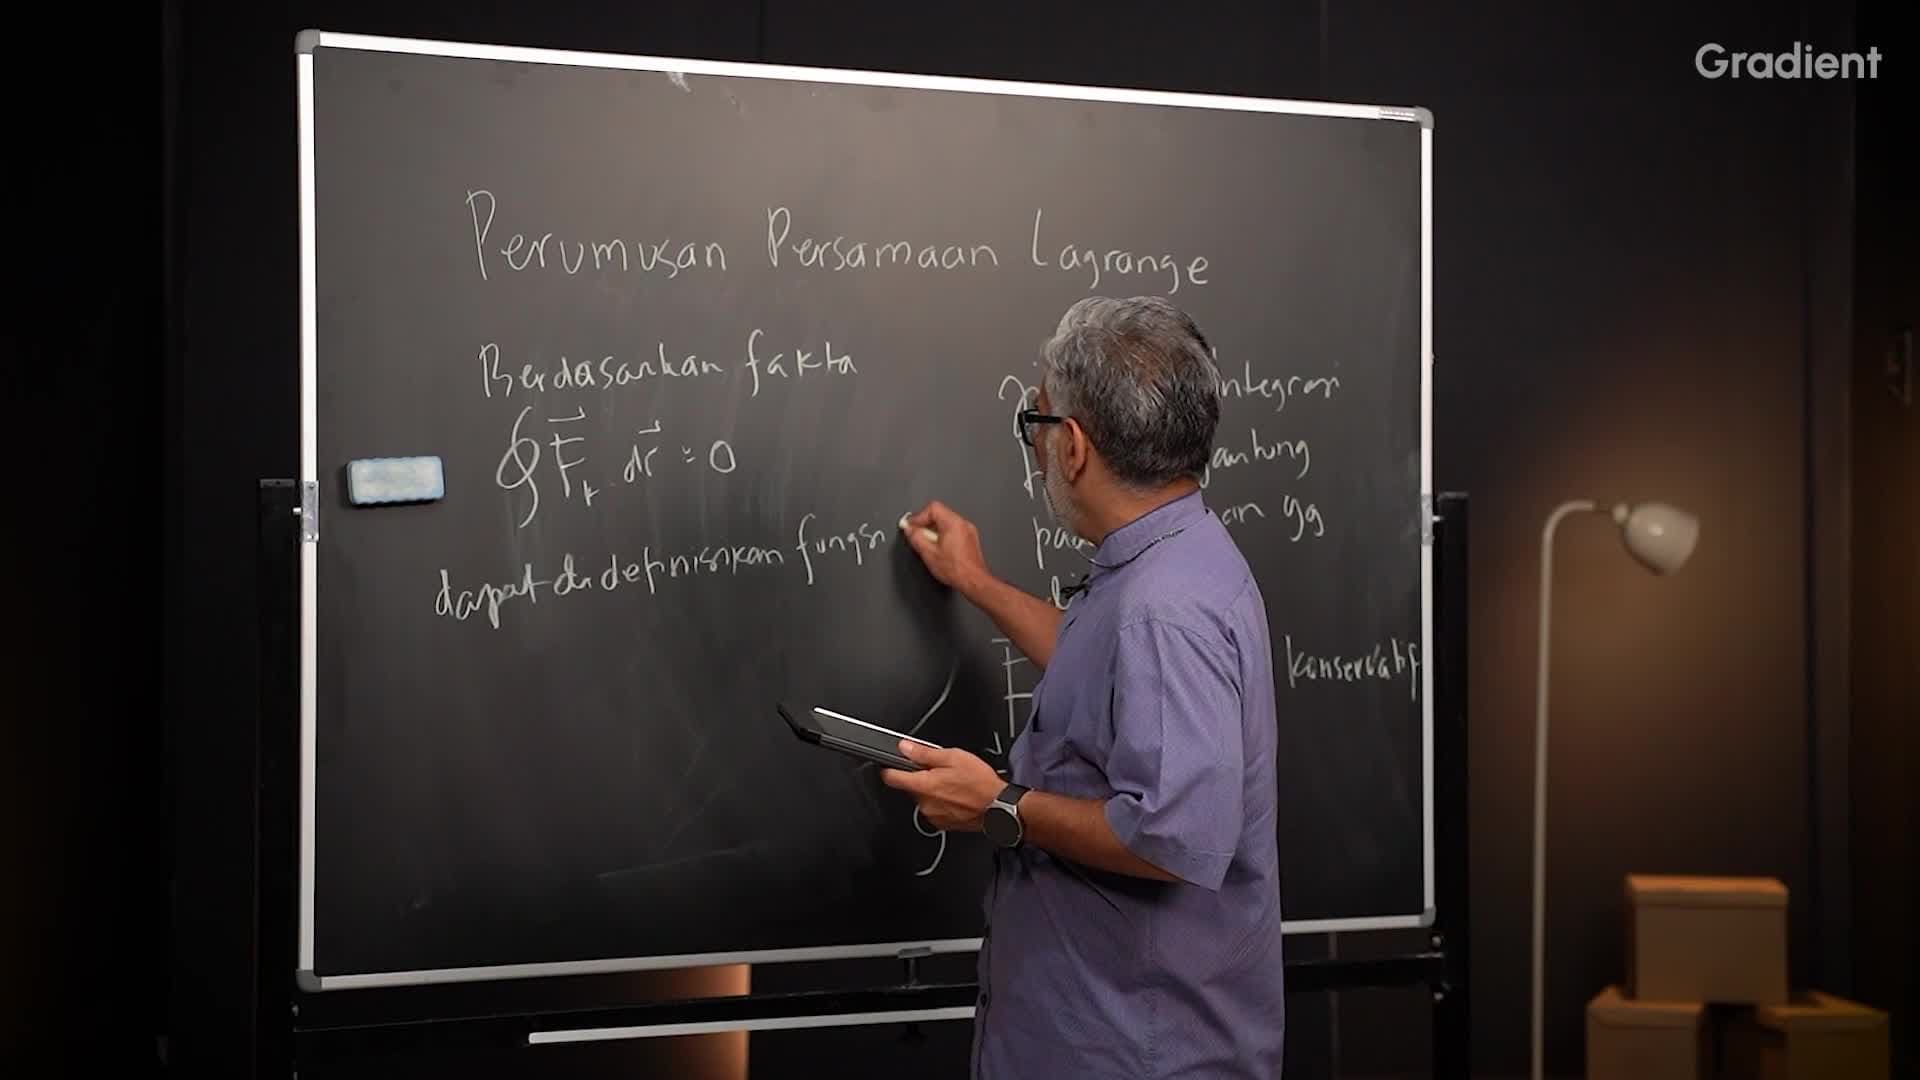 Gradient
Perumusan Persamaan Lagrange
Berdasarkan fakta
∮ F⃗k . dr⃗ = 0
dapat di definisikan fungsi
integrasi
gantung
yg
konservatif